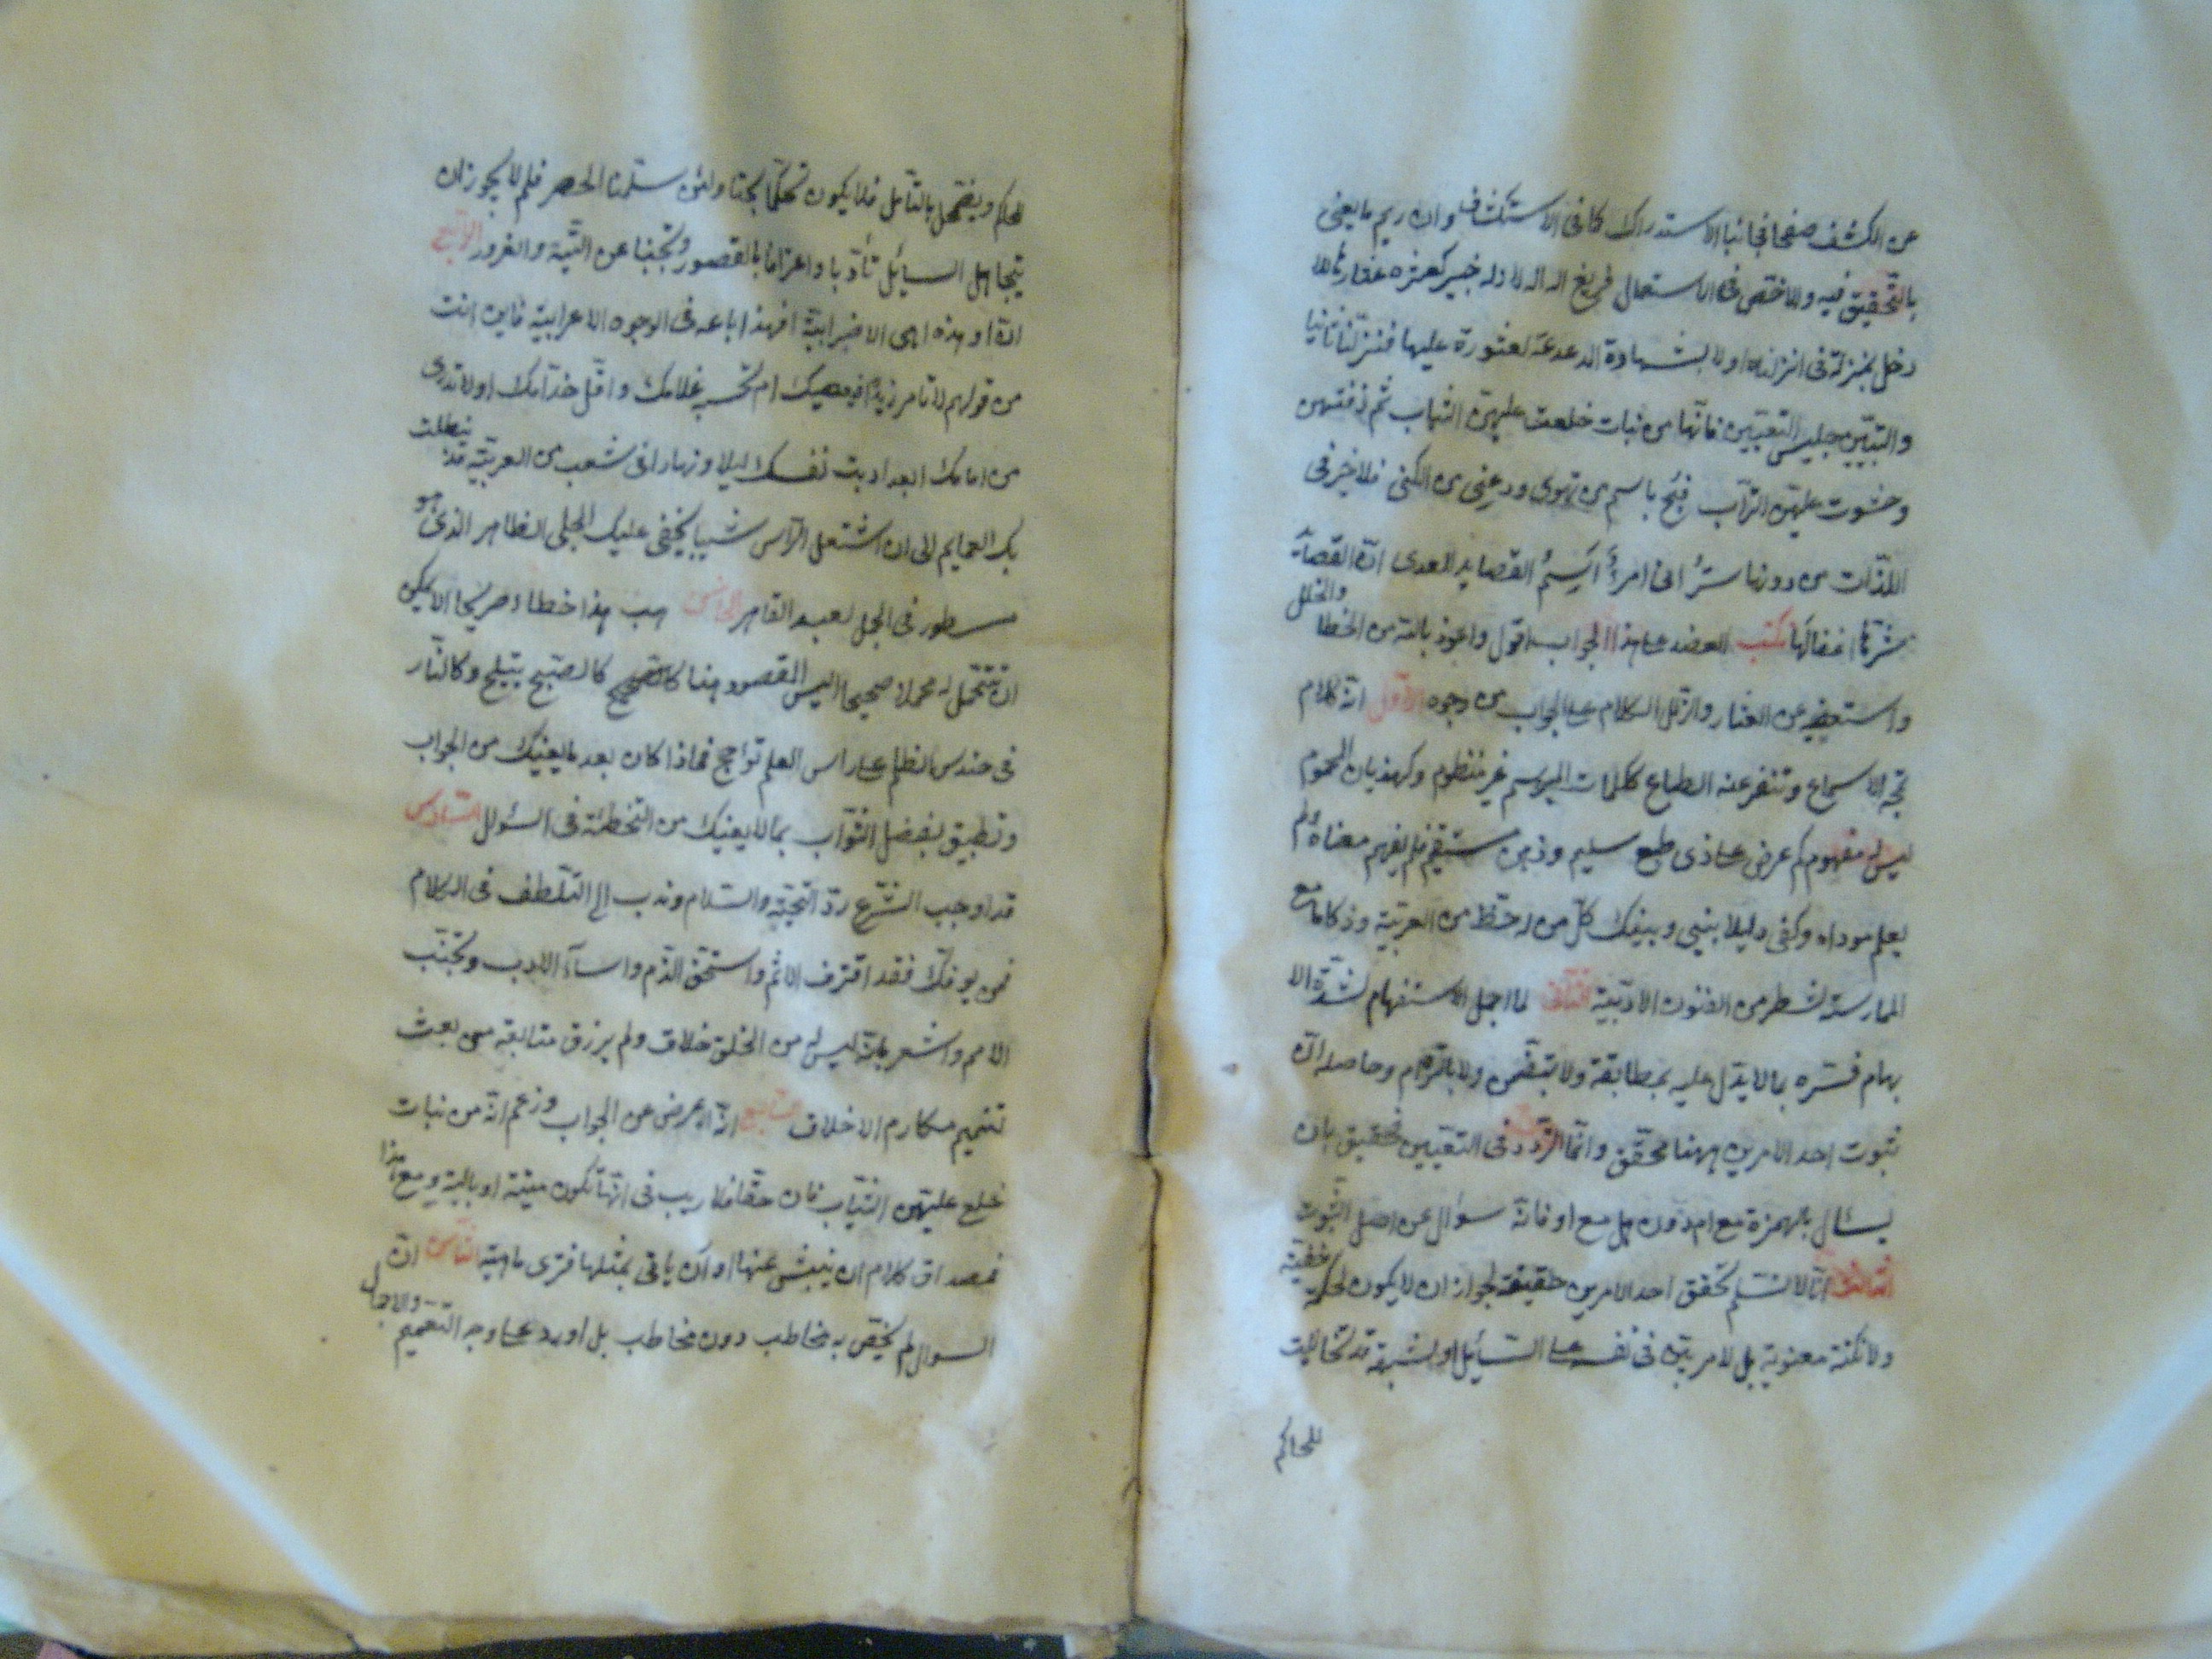 عن الكشف صفحا مجانبا الاستدراك كما فى الاستكشاف وان ريم ما يعنى
بالتحقيق فيه والاختصر فى الاستعمال خبير
دخل بمنزلة فى انزلناه اولا بشهادة لعثورة عليها فنزلنا ثانيا
والتبيين جليس التعيين فانها من نبات خلعت عليهن الثياب ثم دفنتهن
وحثوت عليهن التراب فبح باسم من تهوى ودعنى من الكنى فلا خير فى
اللذات من دونها ستر انى امرؤ اسم القصايد للعدى ان القصائد
شرها اغفالها كتب العضد على هذا الجواب اقول واعوذ بالله من الخطا والخلل
واستعفيه عن العثار والزلل الكلام على الجواب من وجوه الاول انه كلام
تمجه الاسماع وتنفر عنه الطباع ككلمات المبرسم غير منظوم وكهذيان المحموم
ليس له مفهوم كم عرض على ذى طبع سليم وذهن مستقيم فلم يفهم معناه ولم
يعلم موداه وكفى دليلا بينى وبينك كل من له حظ من العربية وذكا ما مع
الممارسة لشطر من الفنون الادبية الثانى لما اجمل الاستفهام لشدة الا
بهام فسره بما لا يدل عليه بمطابقة ولا بتضمن ولا بالتزام وحاصله ان
ثبوت احد الامرين ههنا محقق وانما التردد فى التعيين فحقيق بان
يسئال بالهمزة مع ام دون هل مع او فانه سوال عن اصل الثبوت
الثالث انا لا نسلم تحقق احد الامرين حقيقة لجواز ان لا يكون لحكمة خفية
ولا نكتة معنوية بل لامر بين فى نفسه على السائل او لشبهة قد تخايلت
للحاكم
للحاكم ويضمحل بالتأمل فلا يكون تحكما بحتا ولئن سلمنا الحصر فلم لا يجوز ان
يتجاهل السايل تأدبا واعترافا بالقصور وتجنبا عن التيه والغرور الرابع
ان او هذه اهى الاضرابية افهذا باعه فى الوجوه الاعرابية فاين انت
من قولهم لا تامر زيدا فيعصيك ام تحسب غلامك واقل خدامك اولا تدرى
من امامك ابعد ادبت نفسك ليلا ونهارا فى شعب من العربية قد نيطلت
بك العمايم الى ان اشتعل الرأس شيبا يخفى عليك الجلى الظاهر الذى هو
مسطور فى الجمل لعبد القاهر الخامس هب هذا خطاء صريحا لا يمكن
ان تتمحل له محملا صحيحا اليس المقصود ههنا كالصبح يتبلج وكالنار
فى حندس الظلم على راس العلم تواجج فماذا كان بعد ما يعنيك من الجواب
وتطبيق بفضل الثواب بما لا يعنيك من التخطئة فى السؤال السادس
قد اوجب الشرع رد التحية والسلام وندب الى التلطف فى الكلام
فمن يوفك فقد اقترف الاثم واستحق الذم واساء الادب وتجنب
الامم واشعر بانه ليس له من الخلق خلاق ولم يرزق متابعة من بعث
لتتميم مكارم الاخلاق السابع انه اعرض عن الجواب وزعم انه من نبات
خلع عليهن الثياب فان حقا فلا ريب فى انها تكون ميتة او بالية ومع هذا
فمصداق كلام ان ينبش عنها او ان ياتى بمثلها فترى ماهيته الثامن ان
السوال لم يختص به مخاطب دون مخاطب بل اورد على وجه التعميم والاجمال